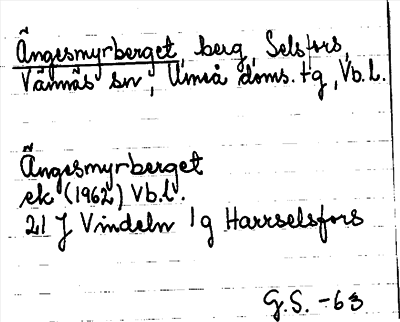 Ängesmyrberget, berg, Selsfors,
Vännäs sn, Umeå doms. tg, Vb.l.
Ängesmyrberget
ek (1962) Vb.l.
21 J Vindeln 1g Harrselsfors
G.S. -63